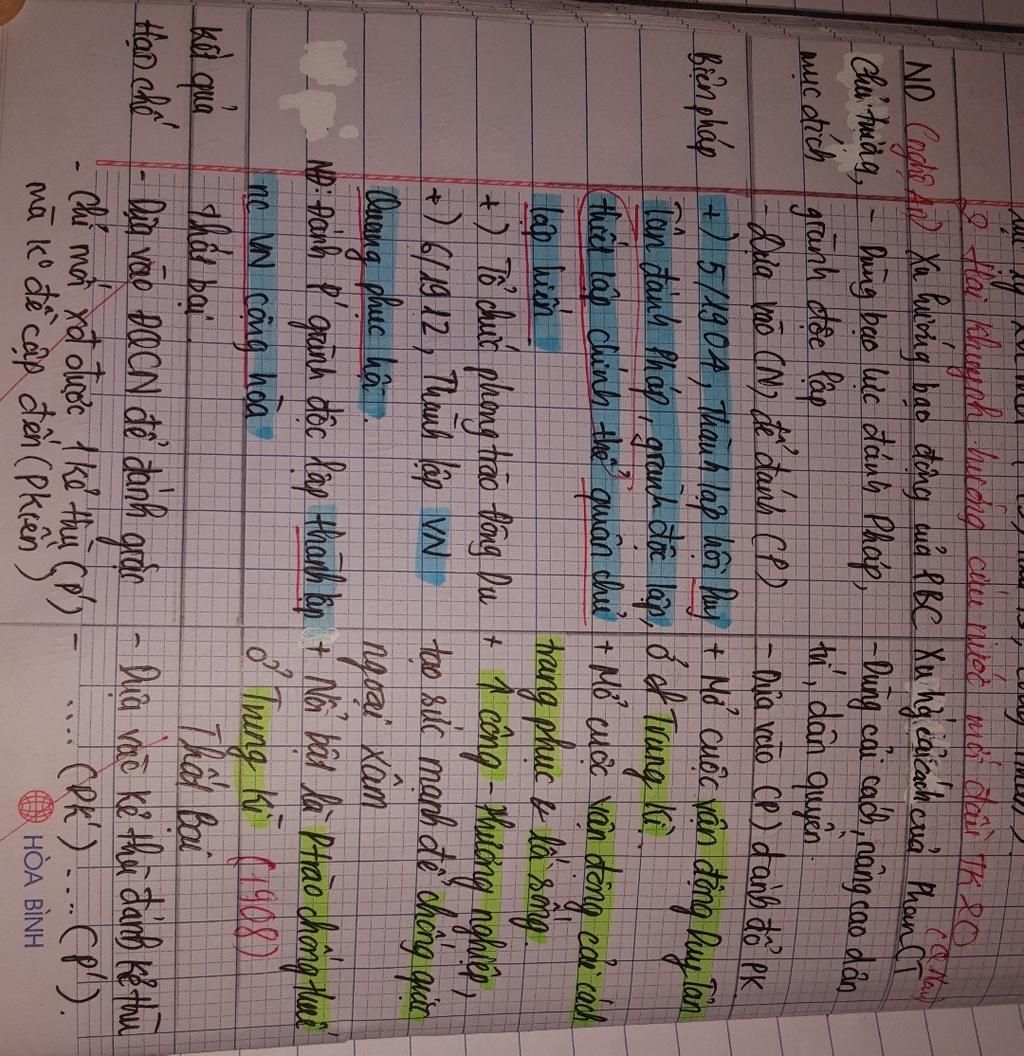 2 Hai khuynh hướng cứu nước mới đầu TK 20
ND (Nghệ An) Xu hướng bạo động của PBC
Xu hg cải cách của Phan CT (Q Nam)
Chủ trương,
mục đích
- Dùng bạo lực đánh Pháp,
giành độc lập
- Dựa vào (N) để đánh (P)
- Dùng cải cách, nâng cao dân
trí, dân quyền.
- Dựa vào (P) đánh đổ PK
Biện pháp
+) 5/1904, Thành lập hội Duy
Tân đánh Pháp, giành độc lập,
thiết lập chính thể quân chủ
lập hiến
+) Tổ chức phong trào Đông Du
+) 6/1912, Thành lập VN
Quang phục hội.
NĐ: Đánh P' giành độc lập thành lập
nc VN cộng hòa
+ Mở cuộc vận động Duy Tân
ở Trung Kì.
+ Mở cuộc vận động cải cách
trang phục & lối sống.
+ 1 công - thương nghiệp,
tạo sức mạnh để chống giặc
ngoại xâm
+ Nổi bật là Ptrào chống thuế
ở Trung Kì (1908)
kết quả
Thất bại
Thất bại
Hạn chế
- Dựa vào ĐQCN để đánh giặc
- Chỉ mới xđ được 1 kẻ thù (P')
mà k° đề cập đến (Pkiến)
- Dựa vào kẻ thù đánh kẻ thù
- .... (PK') ... (P').
HÒA BÌNH